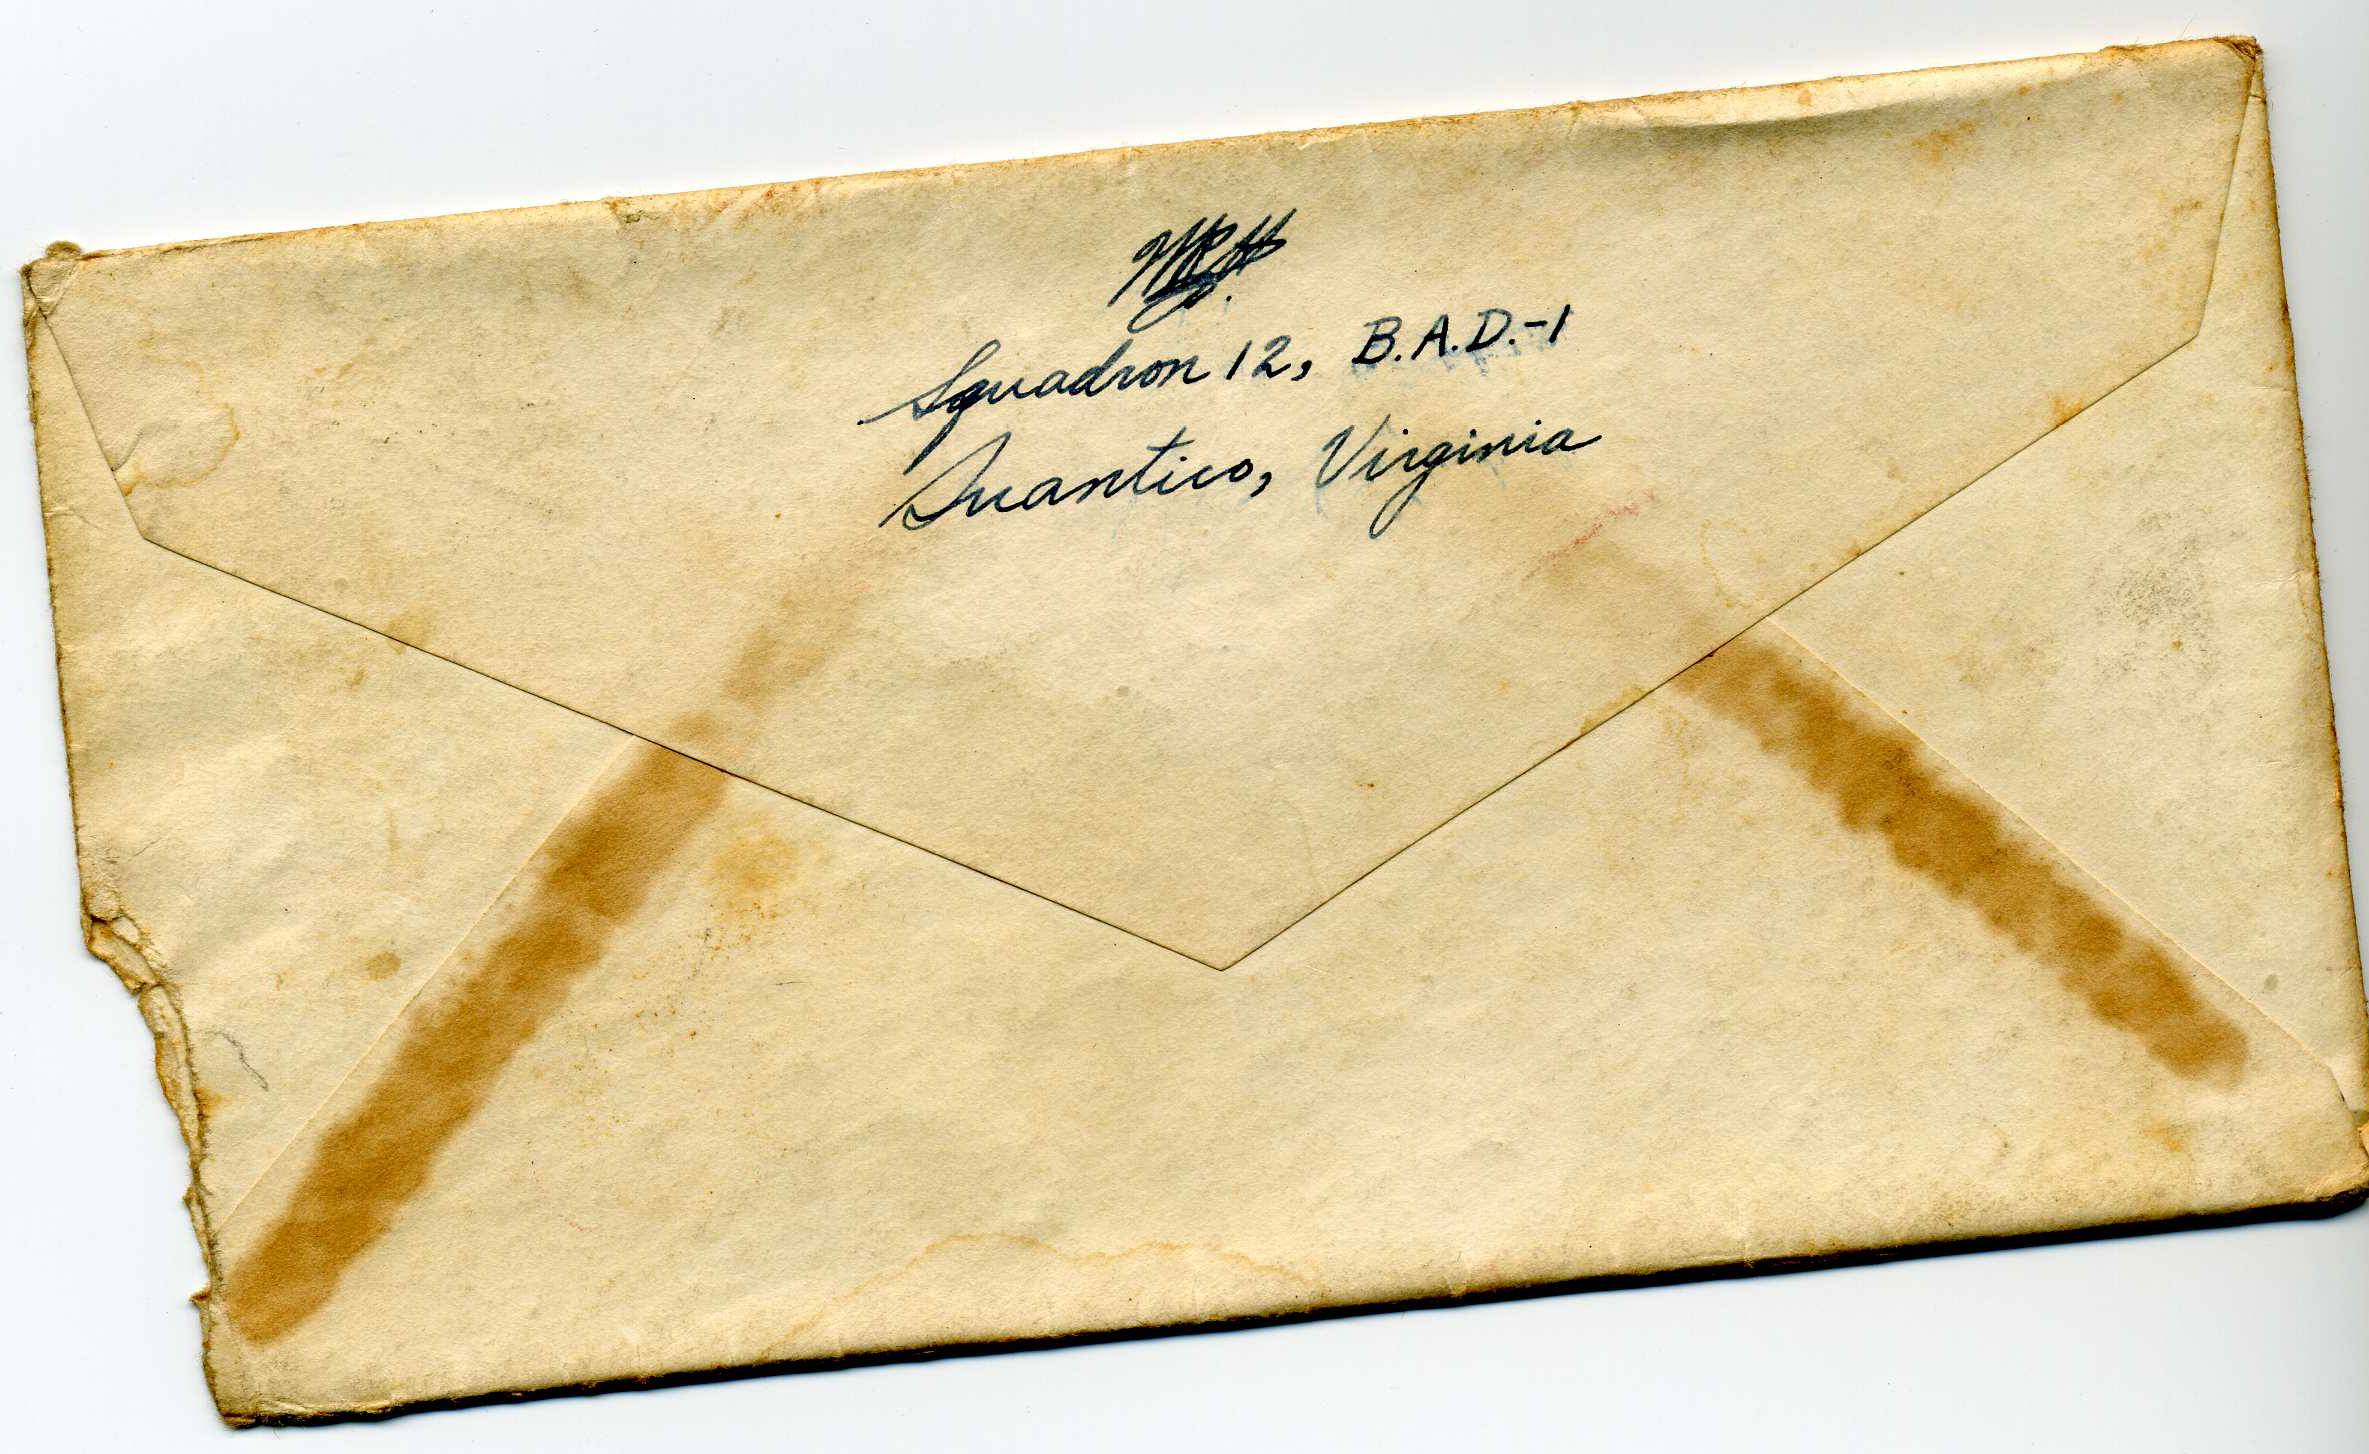 Squadron 12, B.A.D.-1
Quantico, Virginia